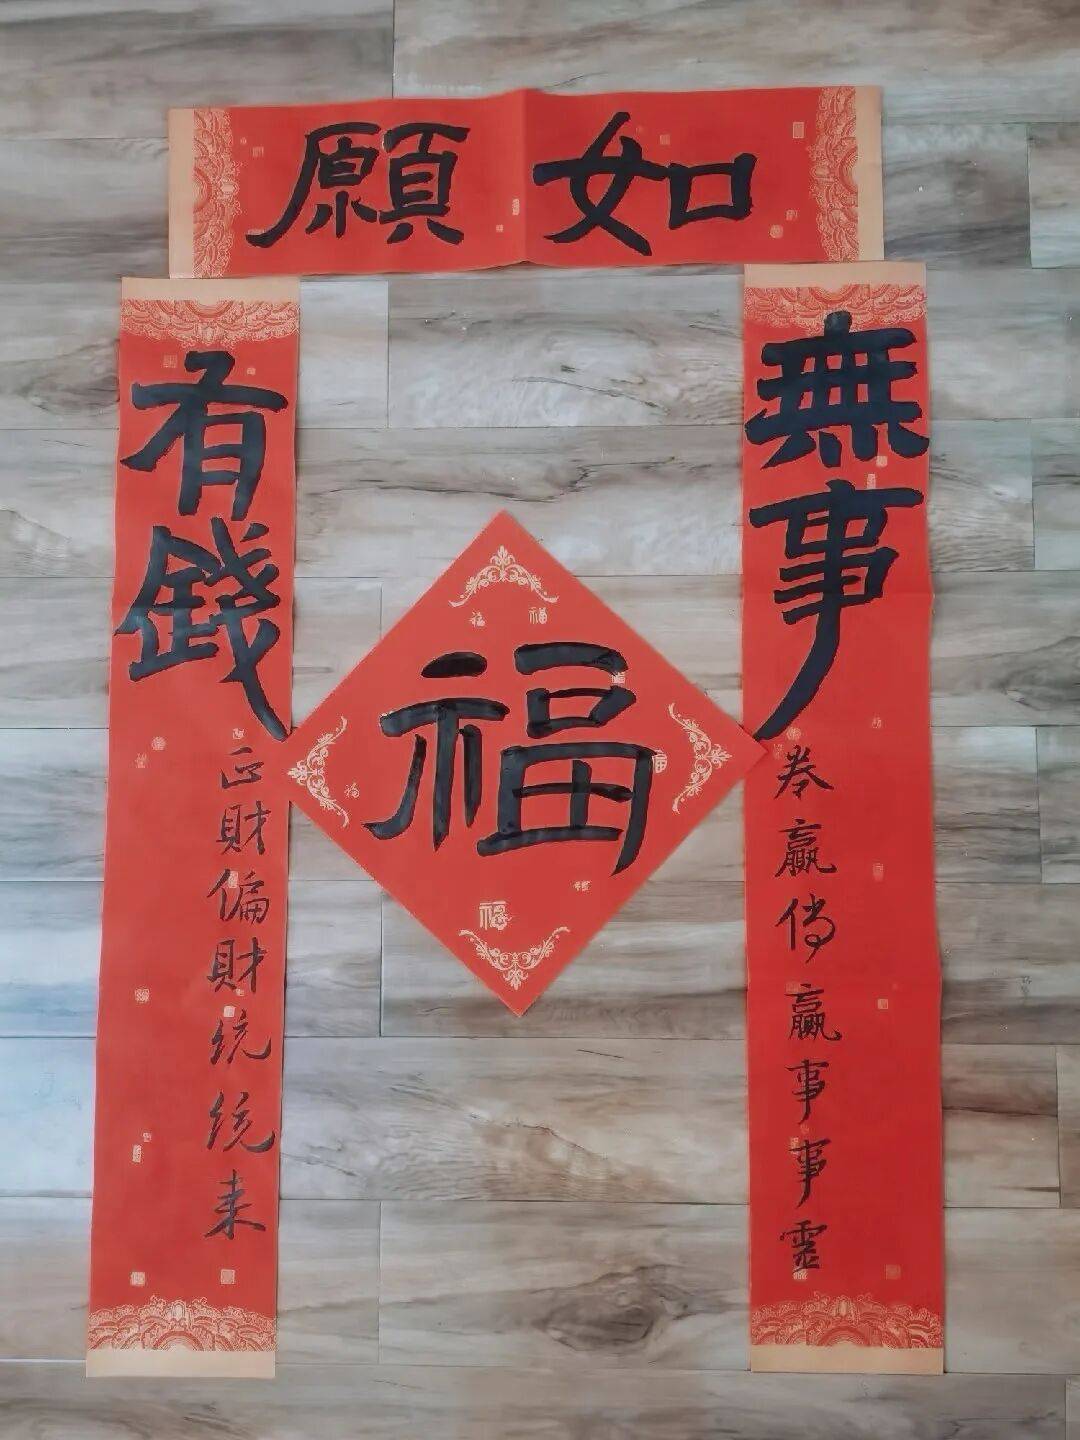 如願
無事
卷贏倘贏事事靈
有錢
正財偏財统统来
福